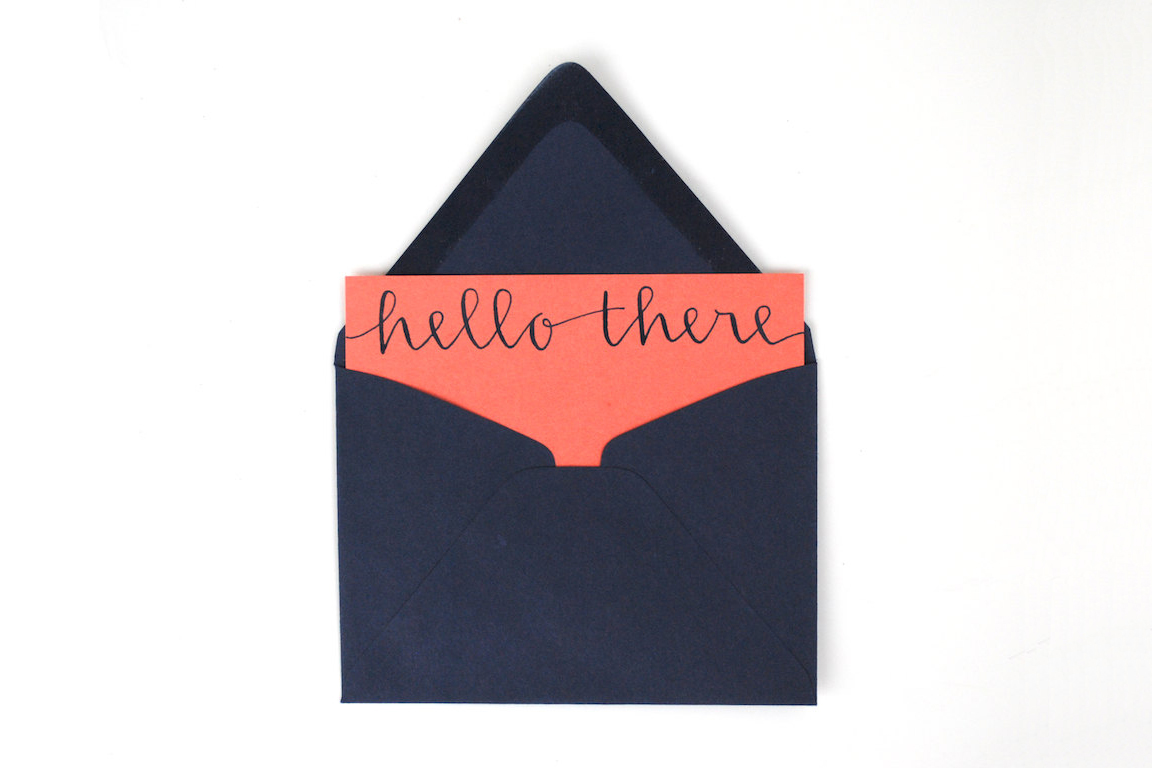 hello there